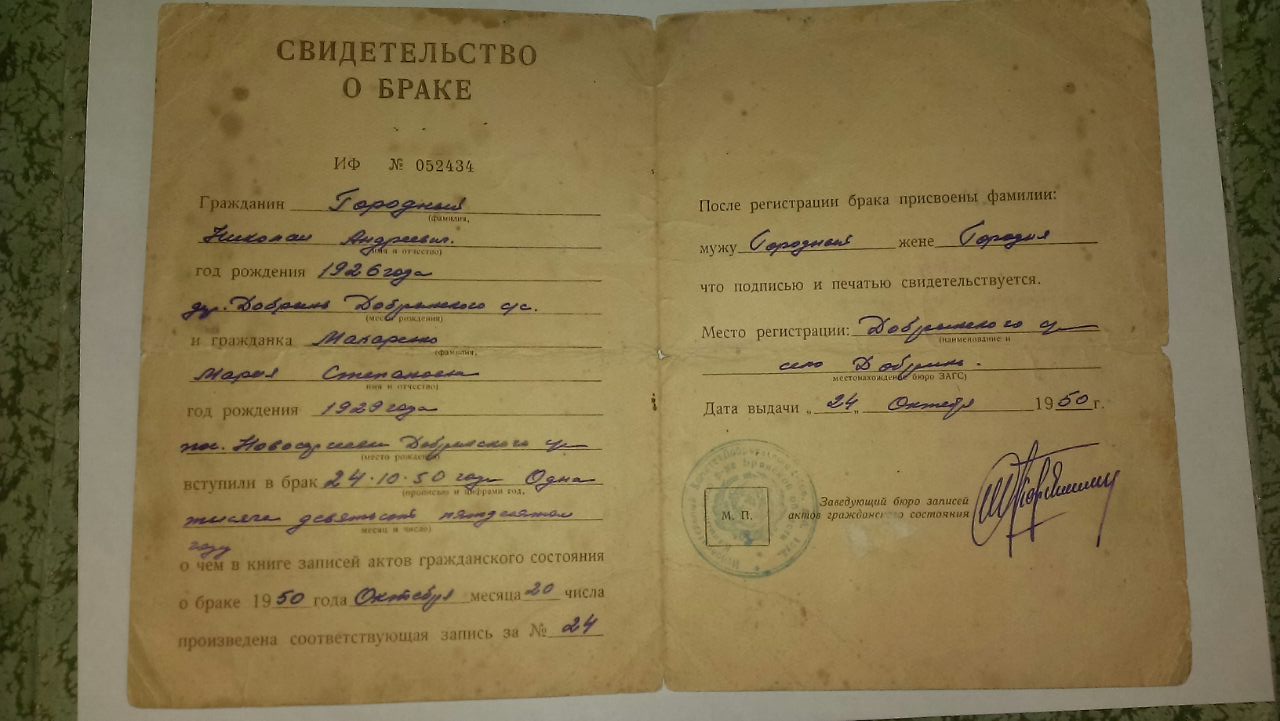 СВИДЕТЕЛЬСТВО
О БРАКЕ
ИФ № 052434
Гражданин Городный
(фамилия,
Николай Андреевич.
имя и отчество)
год рождения 1926 года
Добрынского с/с.
(место рождения)
и гражданка Макаренко
(фамилия,
Мария Степановна
имя и отчество)
год рождения 1929 года
пос. Добрынского
(место рождения)
вступили в брак 24.10.50 года Одна
(прописью и цифрами год,
тысяча девятьсот пятдесятом
месяц и число)
году
о чем в книге записей актов гражданского состояния
о браке 1950 года Октября месяца 20 числа
произведена соответствующая запись за № 24
После регистрации брака присвоены фамилии:
мужу Городный жене Городня
что подписью и печатью свидетельствуется.
Место регистрации: Добрынского
(наименование и
село Добрынь.
местонахождение бюро ЗАГС)
Дата выдачи „24„ Октября 1950 г.
М. П.
Заведующий бюро записей
актов гражданского состояния